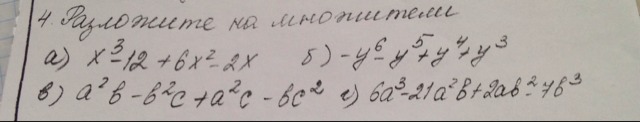 4. Разложите на множители
а) x³-12+6x²-2x б) -y⁶-y⁵+y⁴+y³
в) a²b-b²c+a²c-bc² г) 6a³-21a²b+2ab²-7b³